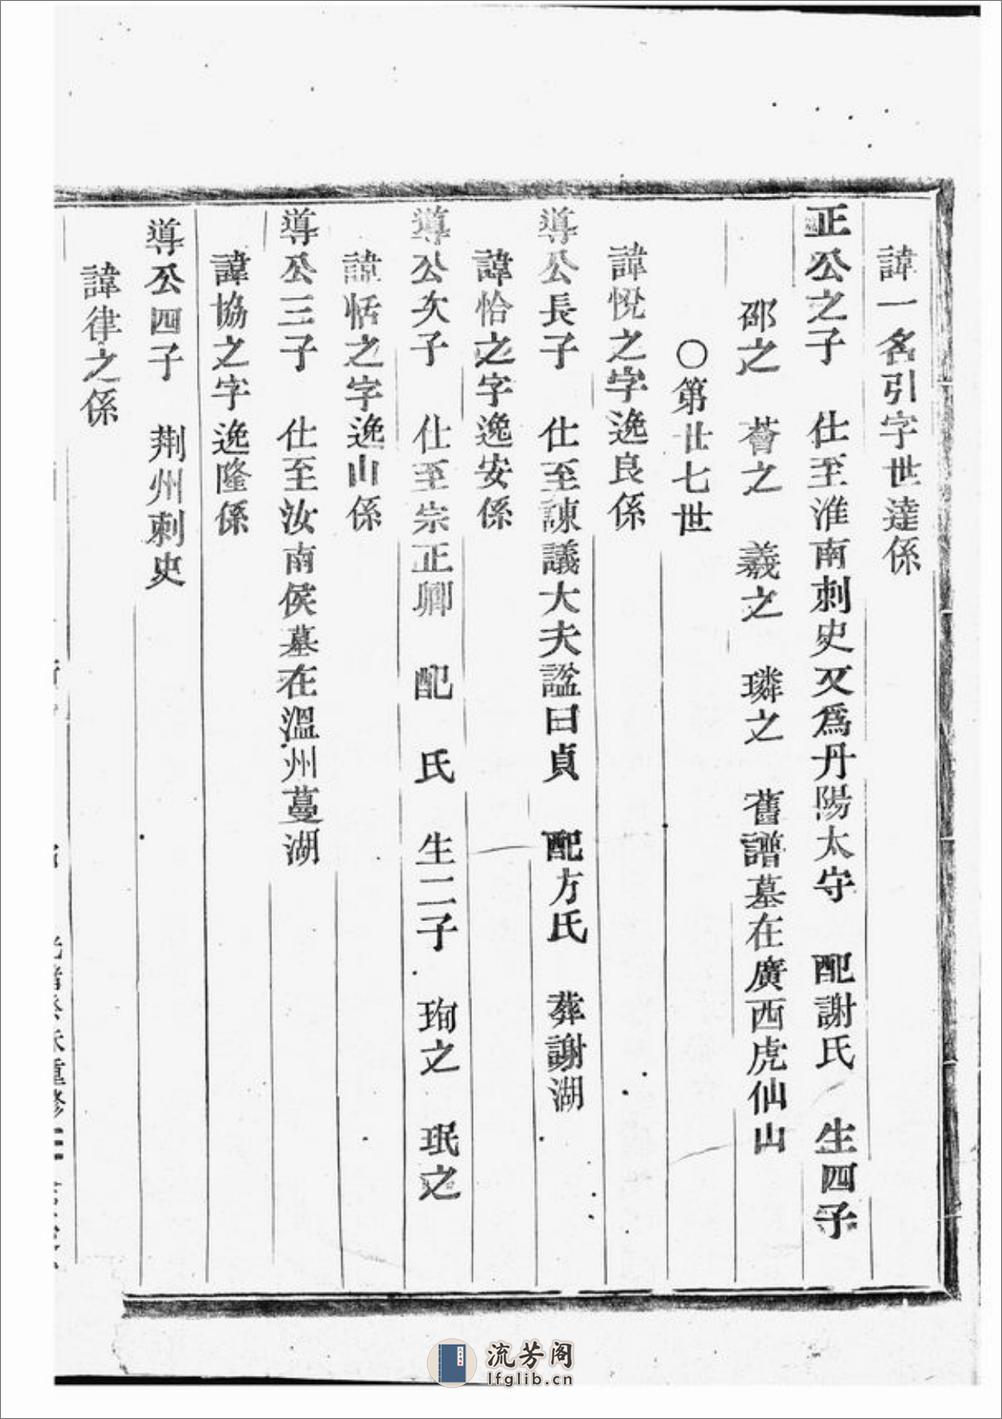 諱一名引字世達係
正公之子 仕至淮南刺史又爲丹陽太守 配謝氏 生四子
邵之 薈之 羲之 璘之 舊譜墓在廣西虎仙山
○第廿七世
諱悅之字逸良係
導公長子 仕至諫議大夫諡曰貞 配方氏 葬謝湖
諱恰之字逸安係
導公次子 仕至宗正卿 配 氏 生二子 珣之 珉之
諱恬之字逸山係
導公三子 仕至汝南侯墓在溫州蔓湖
諱協之字逸隆係
導公四子 荆州刺史
諱律之係
重修
流芳阁
lfglib.cn